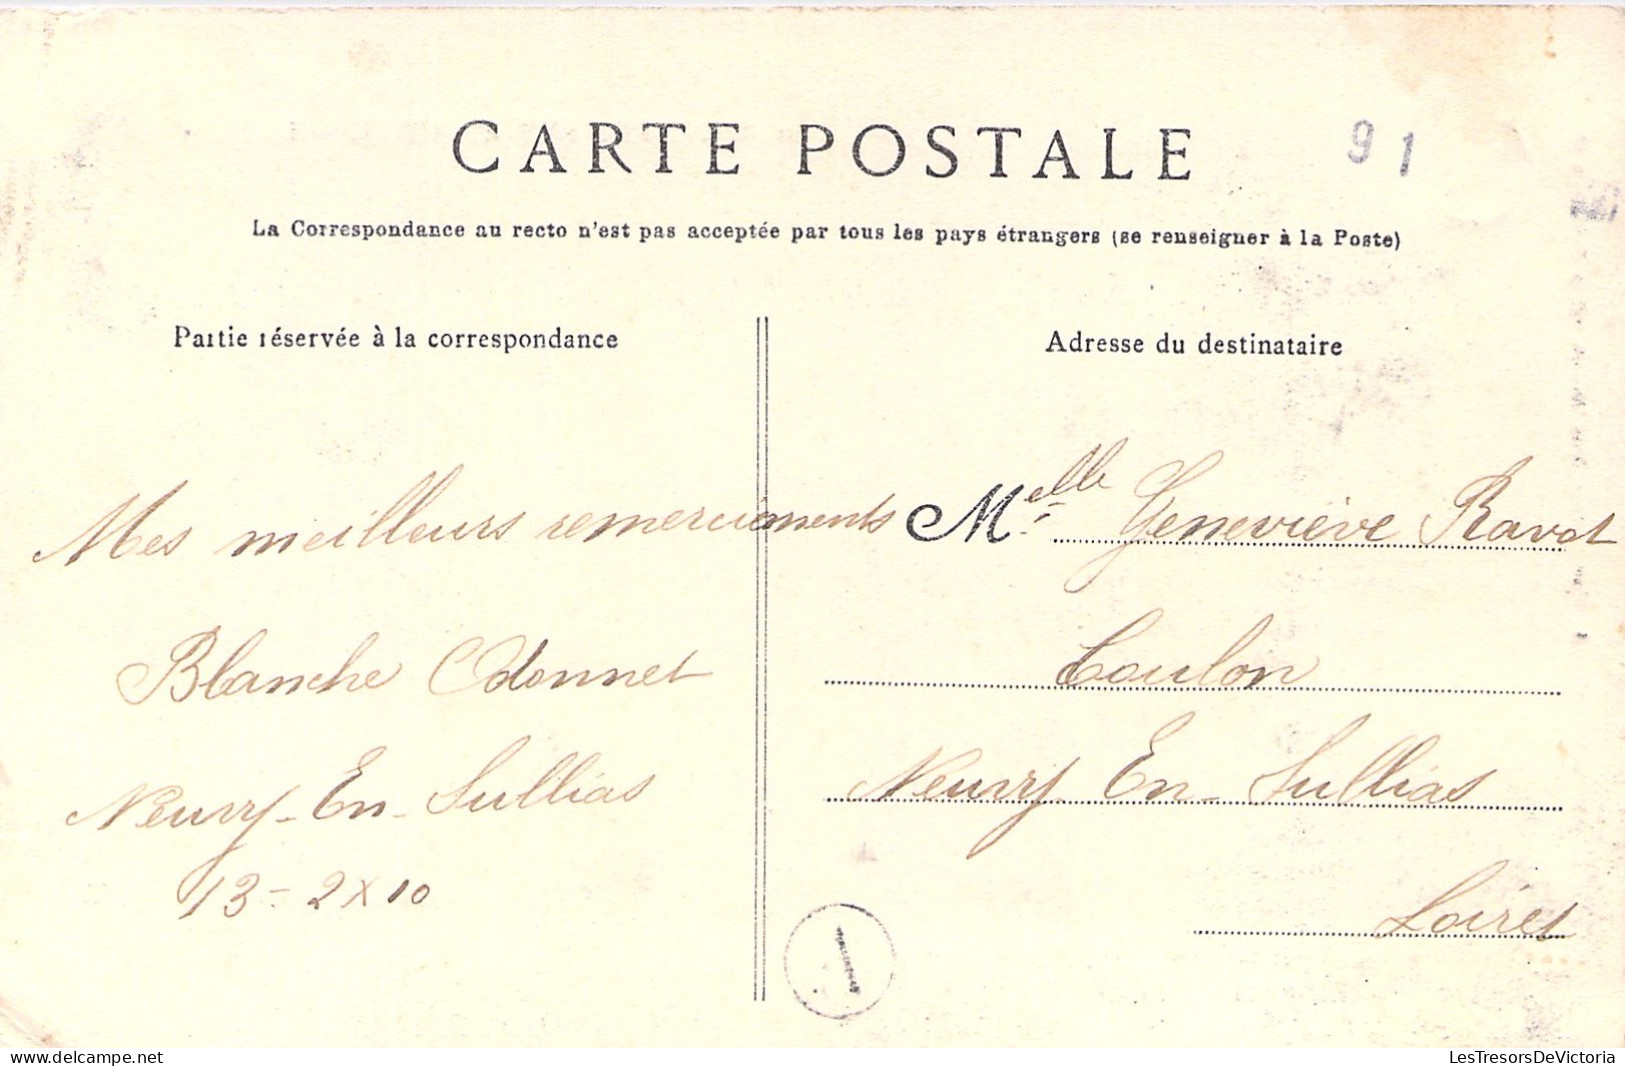 CARTE POSTALE
91
La Correspondance au recto n'est pas acceptée par tous les pays étrangers (se renseigner à la Poste)
Partie réservée à la correspondance
Mes meilleurs remerciements
Blanche Odonnet
Neuvy-En-Sullias
13-2x10
Adresse du destinataire
Melle Geneviève Ravot
Coulon
Neuvy-En-Sullias
Loiret
1
delcampe.net
LesTresorsDeVictoria